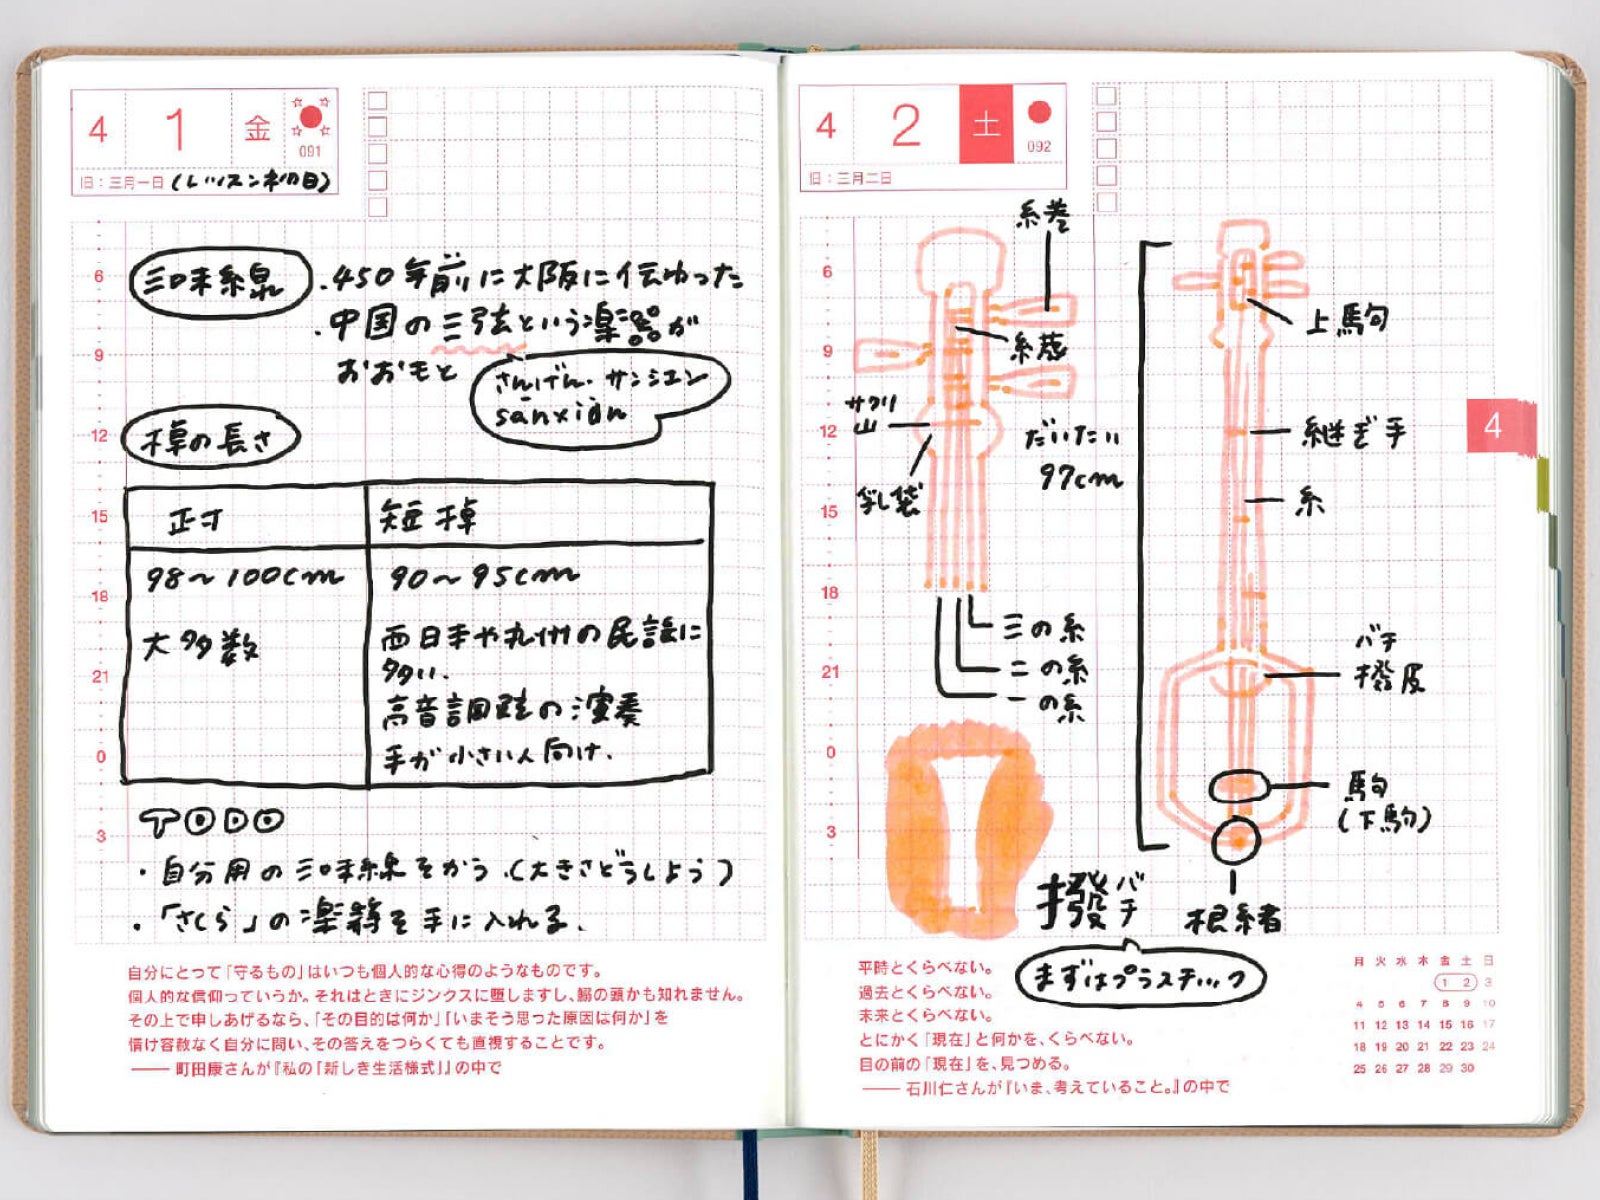 4 1 金
091
旧：三月一日 (レッスン初日)
三味線
・450年前に大阪に伝わった
・中国の三弦という楽器が
おおもと
さんげん・サンシエン
sānxián
棹の長さ
正寸 短棹
98〜100cm 90〜95cm
大多数
西日本や九州の民謡に
多い.
高音調弦の演奏
手が小さい人向け.
TODO
・自分用の三味線をかう.(大きさどうしよう)
・「さくら」の楽譜を手に入れる.
6
9
12
15
18
21
0
3
自分にとって「守るもの」はいつも個人的な心得のようなものです。
個人的な信仰っていうか。それはときにジンクスに堕しますし、鰯の頭かも知れません。
その上で申しあげるなら、「その目的は何か」「いまそう思った原因は何か」を
情け容赦なく自分に問い、その答えをつらくても直視することです。
—— 町田康さんが『私の「新しき生活様式」』の中で
4 2 土
092
旧：三月二日
糸巻
糸蔵
サワリ
山
乳袋
だいたい
97cm
三の糸
二の糸
一の糸
上駒
継ぎ手
糸
バチ
撥皮
駒
(下駒)
根緒
撥 バチ
まずはプラスチック
6
9
12
15
18
21
0
3
4
平時とくらべない。
過去とくらべない。
未来とくらべない。
とにかく「現在」と何かを、くらべない。
目の前の「現在」を、見つめる。
—— 石川仁さんが『いま、考えていること。』の中で
月 火 水 木 金 土 日
1 2 3
4 5 6 7 8 9 10
11 12 13 14 15 16 17
18 19 20 21 22 23 24
25 26 27 28 29 30